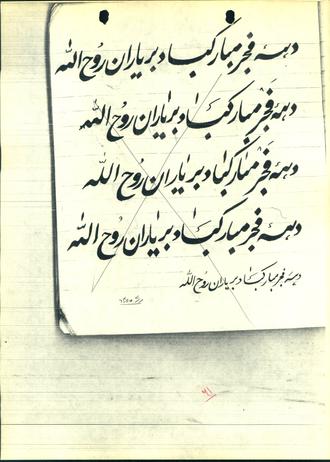 دههٔ فجر مبارکباد بر یاران روح الله
دههٔ فجر مبارکباد بر یاران روح الله
دههٔ فجر مبارکباد بر یاران روح الله
دههٔ فجر مبارکباد بر یاران روح الله
دههٔ فجر مبارکباد بر یاران روح الله
۶۱